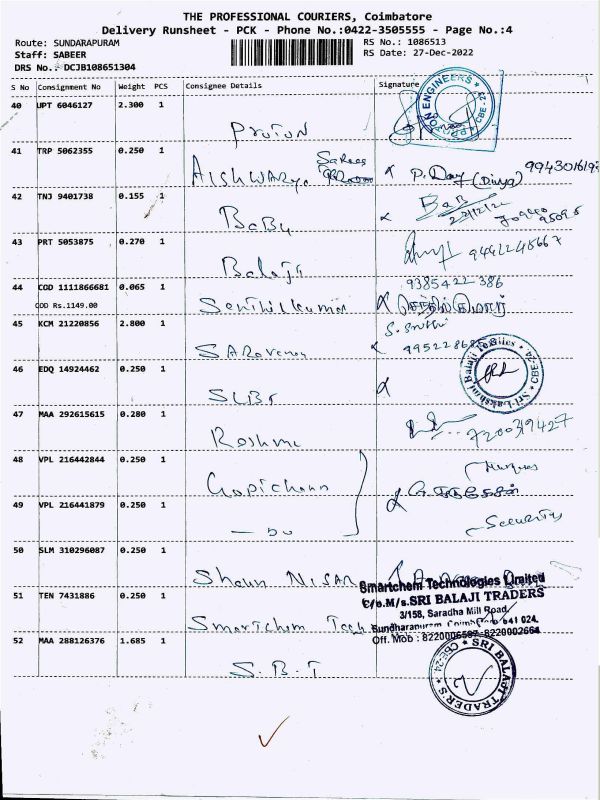 THE PROFESSIONAL COURIERS, Coimbatore
Delivery Runsheet - PCK - Phone No.:0422-3505555 - Page No.:4
Route: SUNDARAPURAM
RS No.: 1086513
Staff: SABEER
RS Date: 27-Dec-2022
DRS No.: DCJB108651304
S No Consignment No Weight PCS Consignee Details Signature
40 UPT 6046127 2.300 1
Proton
41 TRP 5062355 0.250 1
Aishwarya Sarees
P. Day (Divya)
42 TNJ 9401738 0.155 1
Baby
43 PRT 5053875 0.270 1
Balaji
44 COD 1111866681 0.065 1
COD Rs.1149.00
Senthilkumar
9385422386
செந்தில்குமார்
45 KCM 21220856 2.800 1
Saravanan
46 EDQ 14924462 0.250 1
SLBT
Sri Lakshmi Balaji Textiles * CBE-24
47 MAA 292615615 0.280 1
Reshma
48 VPL 216442844 0.250 1
Gopichann
49 VPL 216441879 0.250 1
- DO
Security
50 SLM 310296087 0.250 1
Shaun Nisar
51 TEN 7431886 0.250 1
Smartchem Tech
Smartchem Technologies Limited
C/o.M/s.SRI BALAJI TRADERS
3/158, Saradha Mill Road,
Sundharapuram, Coimbatore 641 024.
Off. Mob : 8220006597 8220002664
52 MAA 288126376 1.685 1
S.B.T
SRI BALAJI TRADER'S * CBE-24 *